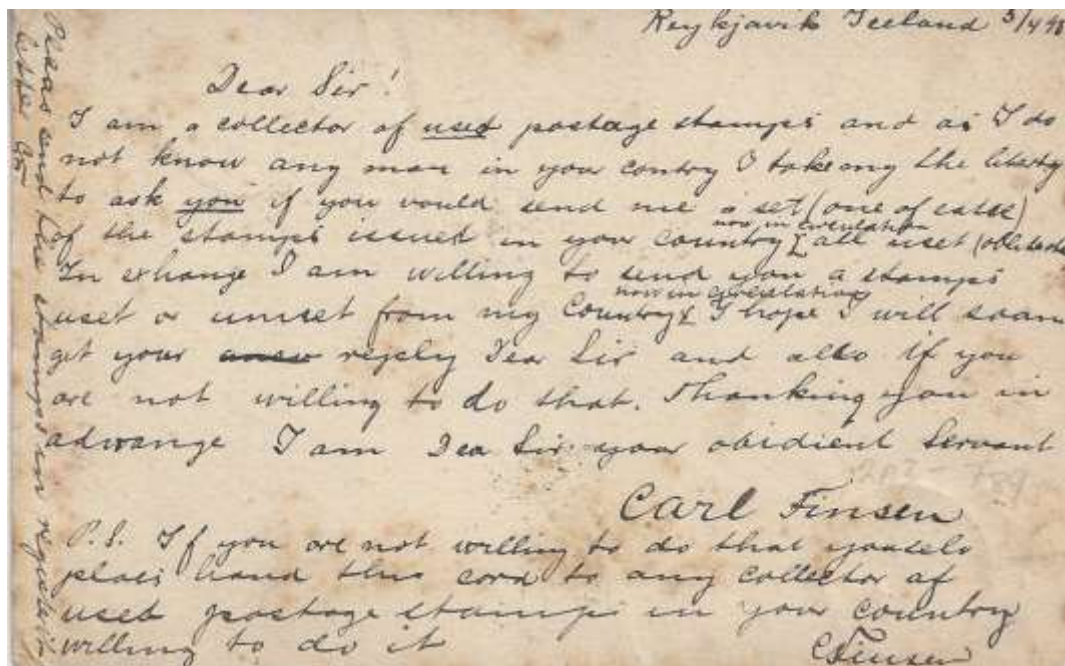 Reykjavik Iceland 5/4 98
Dear Sir!
I am a collector of used postage stamps and as I do
not know any man in your contry I take my the liberty
to ask you if you would send me a set (one of
now in circulation
of the stamps issued in your country all uset
In exhange I am willing to send you a stamps
now in circulation
uset or unuset from my Country & I hope I will soon
get your reply Dear Sir and also if you
are not willing to do that. Thanking you in
adwange I am Dear Sir your obidient Servant
Carl Finsen
P.S. If you are not willing to do that
hand this card to any collector of
used postage stamps in your country
willing to do it
CFinsen
Pleas send the stamps in
letter